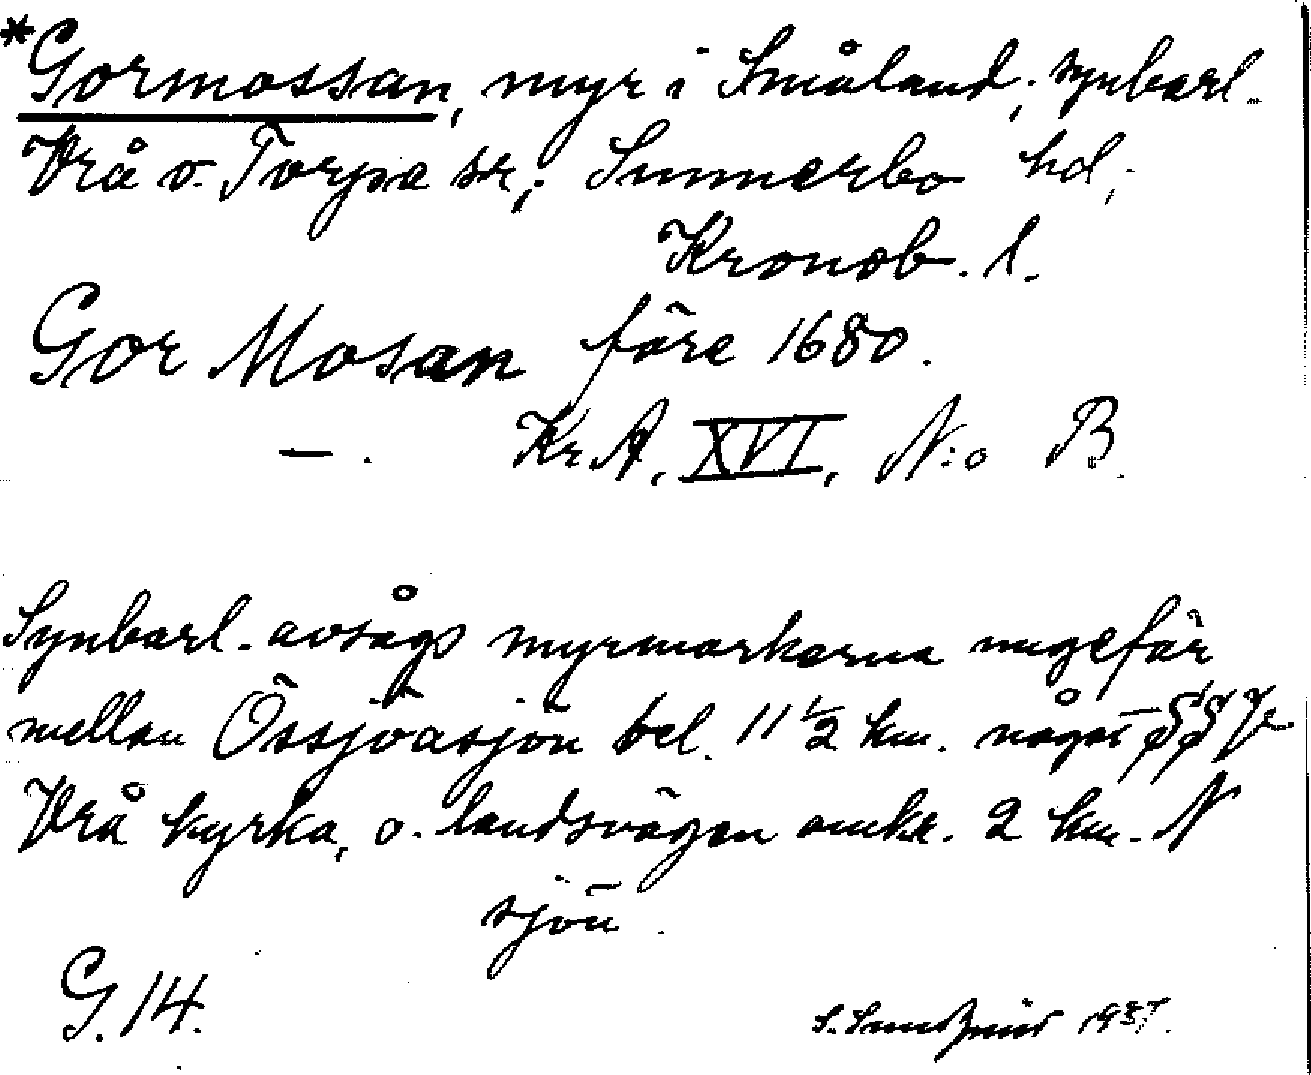 *Gormossan, myr i Småland; synbarl.
Vrå o. Torpa sr; Sunnerbo hd,
Kronob. l.
Gor Mosan före 1680.
—. Kr.A, XVI, N:o B.
Synbarl. avsågs myrmarkerna ungefär
mellan Össjöasjön bel. 11 1/2 km. något
Vrå kyrka, o. landsvägen omkr. 2 km. N
sjön.
G.14.
S. 1937.